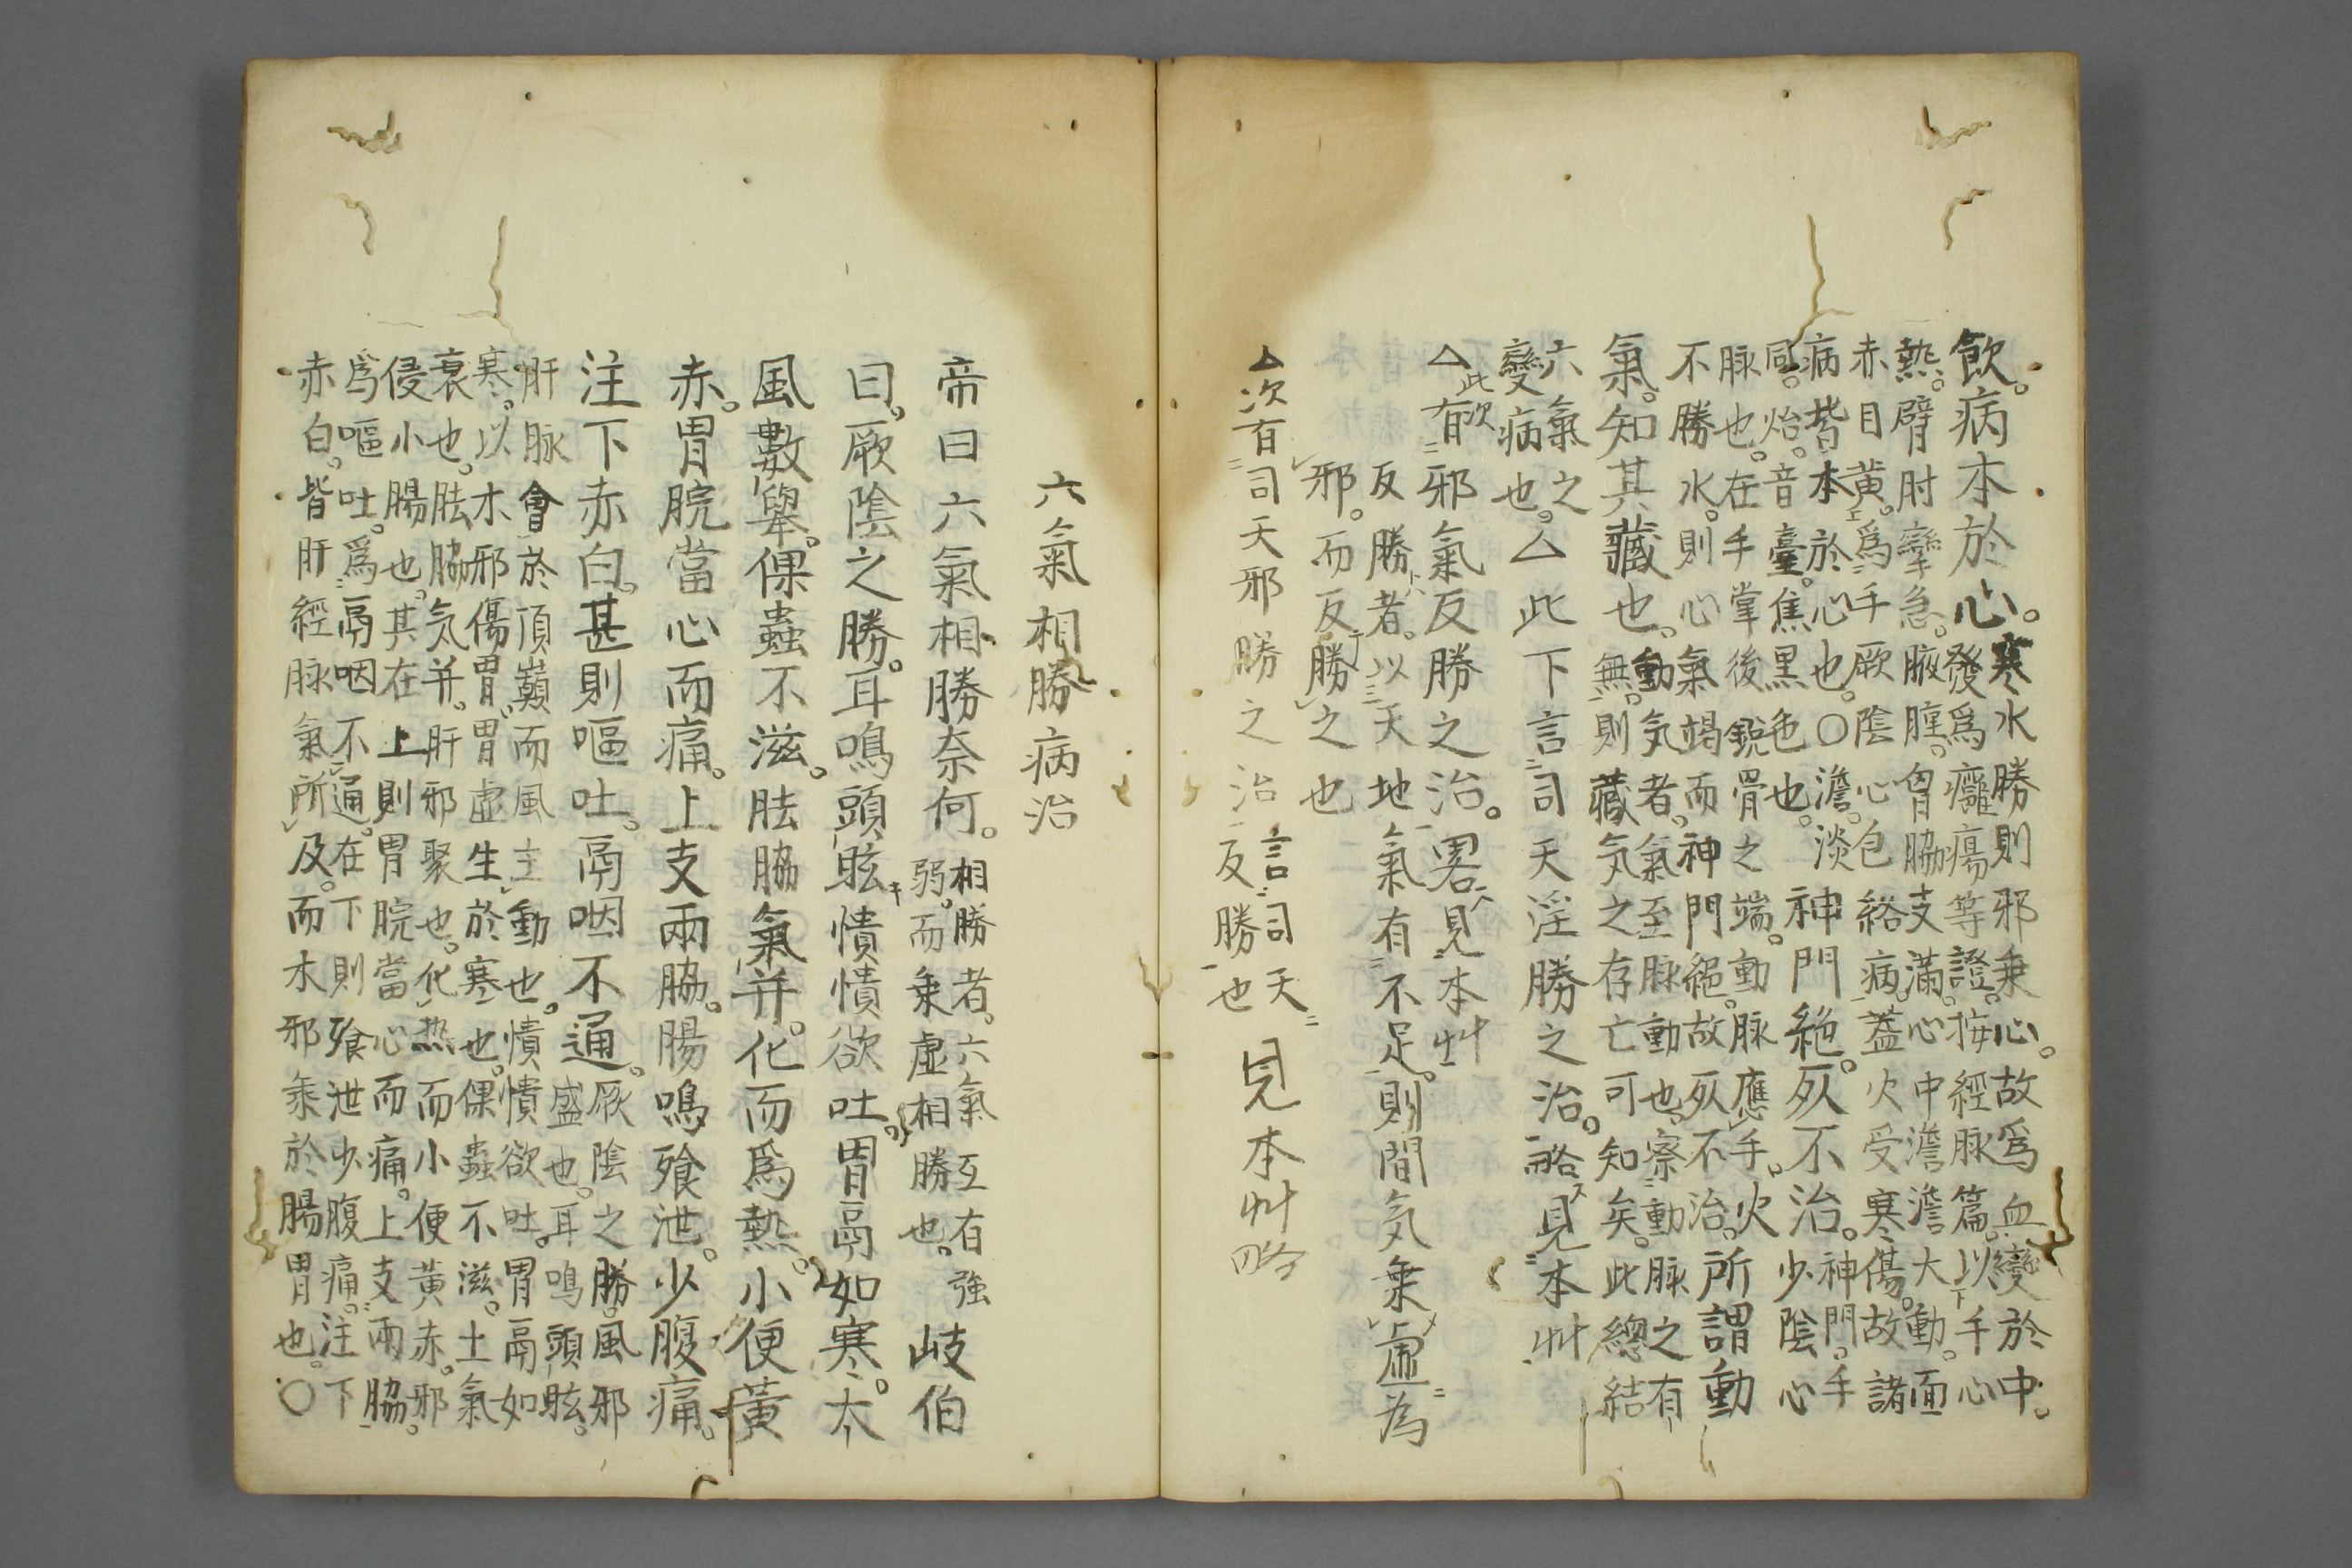 飲。病本於心。寒水勝則邪乗心。故爲血變於中。
發爲癰瘍等證。按經脉篇。以手心
熱。臂肘攣急。腋腫。胷脇支滿。心中澹澹大動。面
赤目黄。爲手厥陰心包絡病。蓋火受寒傷。故諸
病皆本於心也。〇澹。淡
同。炲。音臺。焦黒色也。神門絶。死不治。神門。手
少陰心
脉也。在手掌後鋭骨之端。動脉應手。火
不勝水。則心氣竭而神門絶。故死不治。所謂動
氣。知其藏也。動気者。氣至脉動也。察動脉之有
無。則藏気之存亡可知矣。此總結
六氣之
變病也。△此下言司天淫勝之治。略見本艸
△此次
有邪氣反勝之治。畧見本艸
反勝者。以天地氣有不足。則間気乗虚為
邪。而反勝之也
△次有司天邪勝之治言司天
反勝也見本艸略
六氣相勝病治
帝曰六氣相勝奈何。相勝者。六氣互有強
弱。而乗虚相勝也。岐伯
曰。厥陰之勝。耳鳴頭眩憒憒欲吐。胃鬲如寒。大
風數擧。倮蟲不滋。胠脇氣并。化而爲熱。小便黄
赤。胃脘當心而痛。上支兩脇。腸鳴飱泄。少腹痛。
注下赤白。甚則嘔吐。鬲咽不通。厥陰之勝。風邪
盛也。耳鳴頭眩。
肝脉會於頂巓而風主動也。憒憒欲吐。胃鬲如
寒。以木邪傷胃。胃虚生於寒也。倮蟲不滋。土氣
衰也。胠脇気并。肝邪聚也。化熱而小便黄赤。邪
侵小腸也。其在上則胃脘當心而痛。上支兩脇。
爲嘔吐。爲鬲咽不通。在下則飱泄少腹痛。注下
赤白。皆肝經脉氣所及。而木邪乗於腸胃也。〇